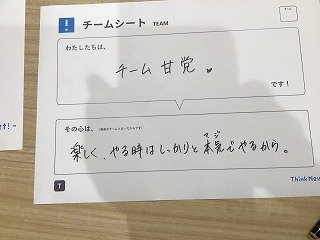 チームシート TEAM
わたしたちは、
チーム甘党
です!
その心は、
マジ
楽しく、やる時はしっかりと本気でやるから。
T